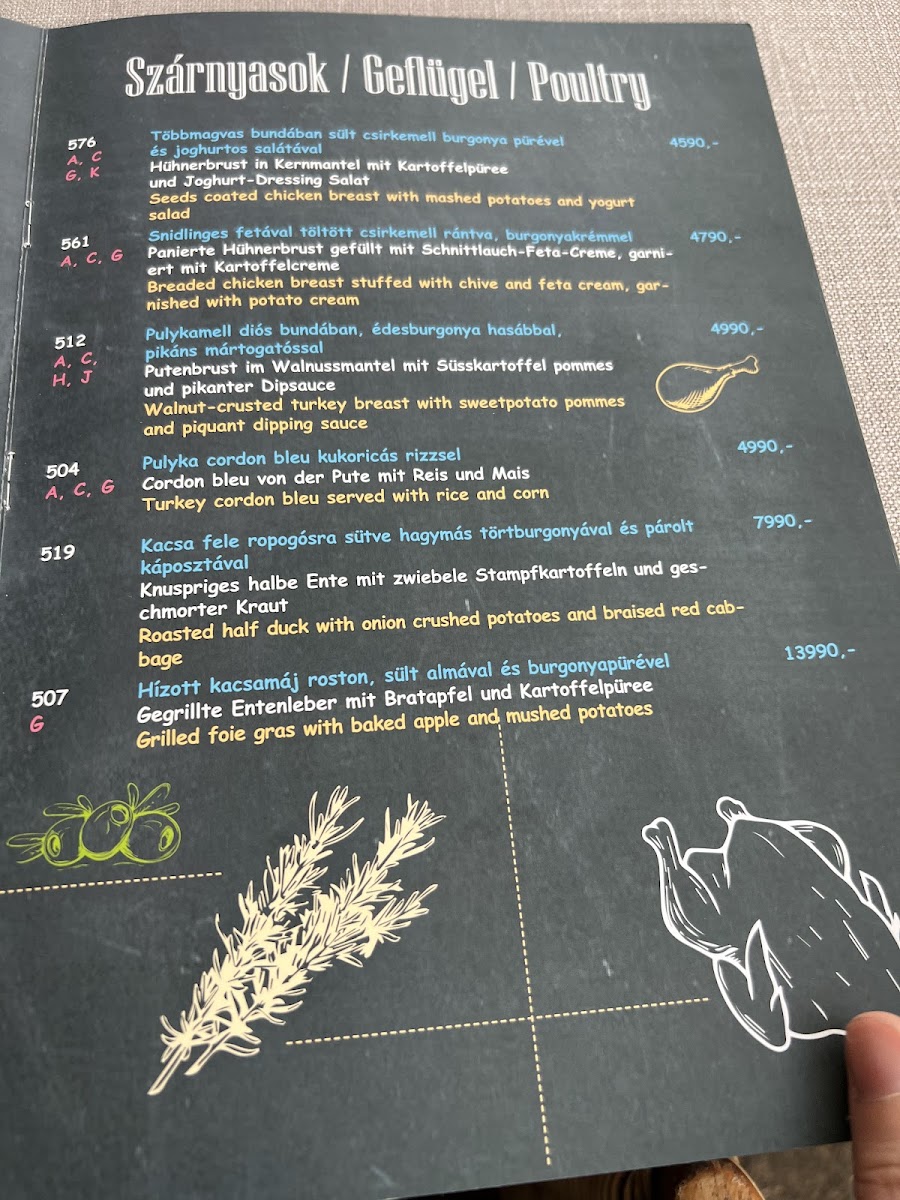 Szárnyasok / Geflügel / Poultry
576
A, C
G, K
Többmagvas bundában sült csirkemell burgonya pürével
és joghurtos salátával
4590,-
Hühnerbrust in Kernmantel mit Kartoffelpüree
und Joghurt-Dressing Salat
Seeds coated chicken breast with mashed potatoes and yogurt
salad
561
A, C, G
Snidlinges fetával töltött csirkemell rántva, burgonyakrémmel
4790,-
Panierte Hühnerbrust gefüllt mit Schnittlauch-Feta-Creme, garni-
ert mit Kartoffelcreme
Breaded chicken breast stuffed with chive and feta cream, gar-
nished with potato cream
512
A, C,
H, J
Pulykamell diós bundában, édesburgonya hasábbal,
pikáns mártogatóssal
4990,-
Putenbrust im Walnussmantel mit Süsskartoffel pommes
und pikanter Dipsauce
Walnut-crusted turkey breast with sweetpotato pommes
and piquant dipping sauce
504
A, C, G
Pulyka cordon bleu kukoricás rizzsel
4990,-
Cordon bleu von der Pute mit Reis und Mais
Turkey cordon bleu served with rice and corn
519
Kacsa fele ropogósra sütve hagymás törtburgonyával és párolt
káposztával
7990,-
Knuspriges halbe Ente mit zwiebele Stampfkartoffeln und ges-
chmorter Kraut
Roasted half duck with onion crushed potatoes and braised red cab-
bage
507
G
Hízott kacsamáj roston, sült almával és burgonyapürével
13990,-
Gegrillte Entenleber mit Bratapfel und Kartoffelpüree
Grilled foie gras with baked apple and mushed potatoes